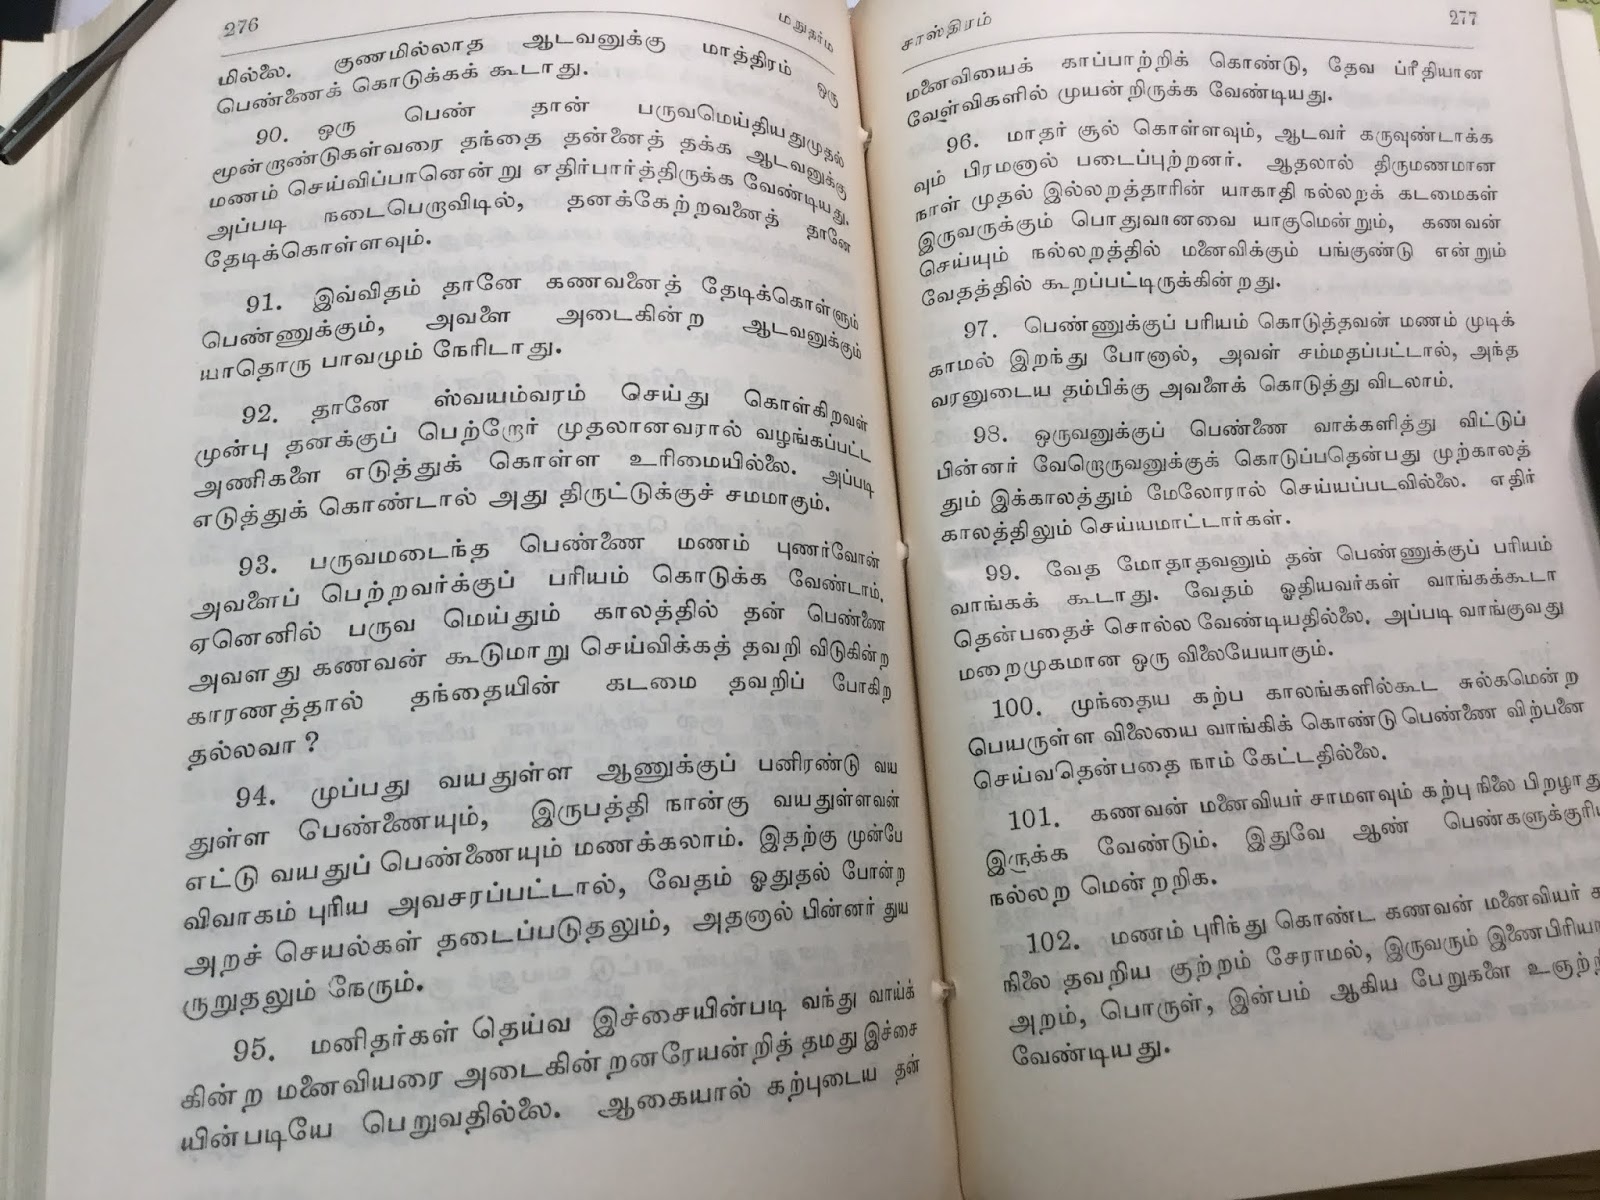 276
மநுதர்ம
மில்லை. குணமில்லாத ஆடவனுக்கு மாத்திரம் ஒரு
பெண்ணைக் கொடுக்கக் கூடாது.
90. ஒரு பெண் தான் பருவமெய்தியதுமுதல்
மூன்றாண்டுகள்வரை தந்தை தன்னைத் தக்க ஆடவனுக்கு
மணம் செய்விப்பானென்று எதிர்பார்த்திருக்க வேண்டியது.
அப்படி நடைபெறாவிடில், தனக்கேற்றவனைத் தானே
தேடிக்கொள்ளவும்.
91. இவ்விதம் தானே கணவனைத் தேடிக்கொள்ளும்
பெண்ணுக்கும், அவளை அடைகின்ற ஆடவனுக்கும்
யாதொரு பாவமும் நேரிடாது.
92. தானே ஸ்வயம்வரம் செய்து கொள்கிறவள்
முன்பு தனக்குப் பெற்றோர் முதலானவரால் வழங்கப்பட்ட
அணிகளை எடுத்துக் கொள்ள உரிமையில்லை. அப்படி
எடுத்துக் கொண்டால் அது திருட்டுக்குச் சமமாகும்.
93. பருவமடைந்த பெண்ணை மணம் புணர்வோன்
அவளைப் பெற்றவர்க்குப் பரியம் கொடுக்க வேண்டாம்.
ஏனெனில் பருவ மெய்தும் காலத்தில் தன் பெண்ணை
அவளது கணவன் கூடுமாறு செய்விக்கத் தவறி விடுகின்ற
காரணத்தால் தந்தையின் கடமை தவறிப் போகிற
தல்லவா ?
94. முப்பது வயதுள்ள ஆணுக்குப் பனிரண்டு வய
துள்ள பெண்ணையும், இருபத்தி நான்கு வயதுள்ளவன்
எட்டு வயதுப் பெண்ணையும் மணக்கலாம். இதற்கு முன்பே
விவாகம் புரிய அவசரப்பட்டால், வேதம் ஓதுதல் போன்ற
அறச் செயல்கள் தடைப்படுதலும், அதனால் பின்னர் துய
ருறுதலும் நேரும்.
95. மனிதர்கள் தெய்வ இச்சையின்படி வந்து வாய்க்
கின்ற மனைவியரை அடைகின்றனரேயன்றித் தமது இச்சை
யின்படியே பெறுவதில்லை. ஆகையால் கற்புடைய தன்
சாஸ்திரம்
277
மனைவியைக் காப்பாற்றிக் கொண்டு, தேவ ப்ரீதியான
வேள்விகளில் முயன்றிருக்க வேண்டியது.
96. மாதர் சூல் கொள்ளவும், ஆடவர் கருவுண்டாக்க
வும் பிரமனால் படைப்புற்றனர். ஆதலால் திருமணமான
நாள் முதல் இல்லறத்தாரின் யாகாதி நல்லறக் கடமைகள்
இருவருக்கும் பொதுவானவை யாகுமென்றும், கணவன்
செய்யும் நல்லறத்தில் மனைவிக்கும் பங்குண்டு என்றும்
வேதத்தில் கூறப்பட்டிருக்கின்றது.
97. பெண்ணுக்குப் பரியம் கொடுத்தவன் மணம் முடிக்
காமல் இறந்து போனால், அவள் சம்மதப்பட்டால், அந்த
வரனுடைய தம்பிக்கு அவளைக் கொடுத்து விடலாம்.
98. ஒருவனுக்குப் பெண்ணை வாக்களித்து விட்டுப்
பின்னர் வேறொருவனுக்குக் கொடுப்பதென்பது முற்காலத்
தும் இக்காலத்தும் மேலோரால் செய்யப்படவில்லை. எதிர்
காலத்திலும் செய்யமாட்டார்கள்.
99. வேத மோதாதவனும் தன் பெண்ணுக்குப் பரியம்
வாங்கக் கூடாது. வேதம் ஓதியவர்கள் வாங்கக்கூடா
தென்பதைச் சொல்ல வேண்டியதில்லை. அப்படி வாங்குவது
மறைமுகமான ஒரு விலையேயாகும்.
100. முந்தைய கற்ப காலங்களில்கூட சுல்கமென்ற
பெயருள்ள விலையை வாங்கிக் கொண்டு பெண்ணை விற்பனை
செய்வதென்பதை நாம் கேட்டதில்லை.
101. கணவன் மனைவியர் சாமளவும் கற்பு நிலை பிறழாது
இருக்க வேண்டும். இதுவே ஆண் பெண்களுக்குரிய
நல்லற மென்றறிக.
102. மணம் புரிந்து கொண்ட கணவன் மனைவியர்
நிலை தவறிய குற்றம் சேராமல், இருவரும்
அறம், பொருள், இன்பம் ஆகிய பேறுகளை
வேண்டியது.